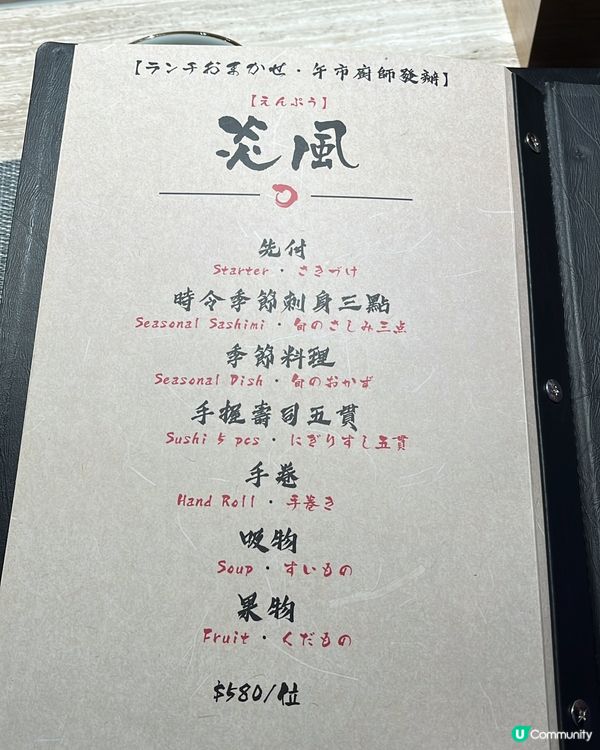 【ランチおまかせ・午市廚師發辦】
【えんぷう】
炎風
先付
Starter・さきづけ
時令季節刺身三點
Seasonal Sashimi・旬のさしみ三点
季節料理
Seasonal Dish・旬のおかず
手握壽司五貫
Sushi 5 pcs・にぎりすし五貫
手巻
Hand Roll・手巻き
吸物
Soup・すいもの
果物
Fruit・くだもの
$580/位
U Community